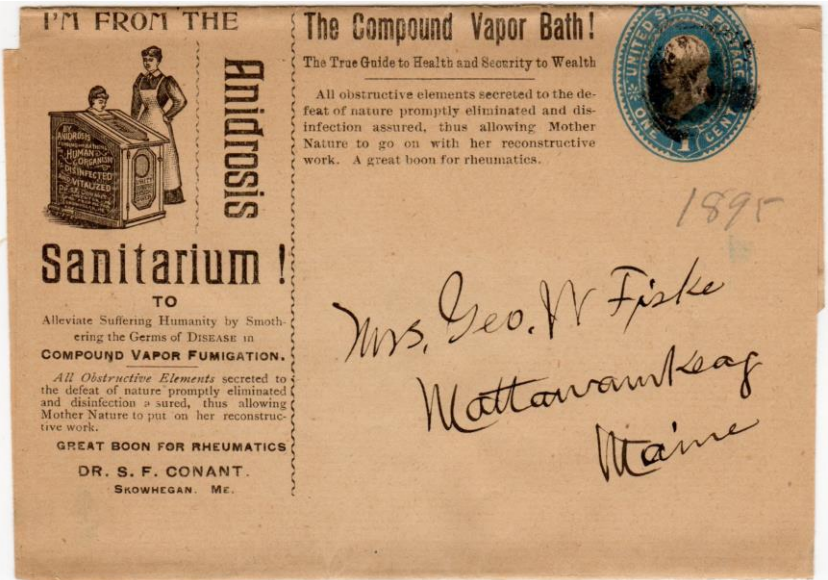 I'M FROM THE
Anidrosis
BY
ANIDROSIS
HUMAN
ORGANISM
IS DISINFECTED
AND VITALIZED
Sanitarium !
TO
Alleviate Suffering Humanity by Smoth-
ering the Germs of DISEASE in
COMPOUND VAPOR FUMIGATION.
All Obstructive Elements secreted to
the defeat of nature promptly eliminated
and disinfection a sured, thus allowing
Mother Nature to put on her reconstruc-
tive work.
GREAT BOON FOR RHEUMATICS
DR. S. F. CONANT.
SKOWHEGAN. ME.
The Compound Vapor Bath !
The True Guide to Health and Security to Wealth
All obstructive elements secreted to the de-
feat of nature promptly eliminated and dis-
infection assured, thus allowing Mother
Nature to go on with her reconstructive
work. A great boon for rheumatics.
UNITED STATES POSTAGE
ONE 1 CENT
1895
Mrs. Geo. W Fiske
Mattawamkeag
Maine